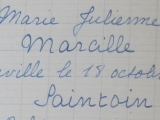 Marie Julienne
Marcille
ville le 18 octob
Saintoin